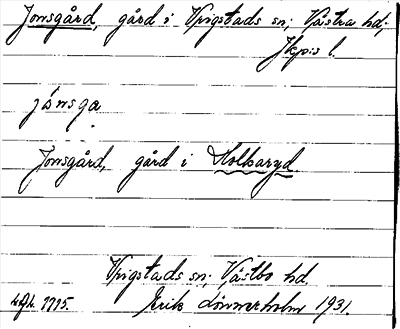 Jonsgård, gård i Vrigstads sn; Västra hd;
Jkp:s l.
jònsga
Jonsgård, gård i Kolbaryd.
Vrigstads sn; Västbo hd.
1715. Erik Lönnerholm 1931.